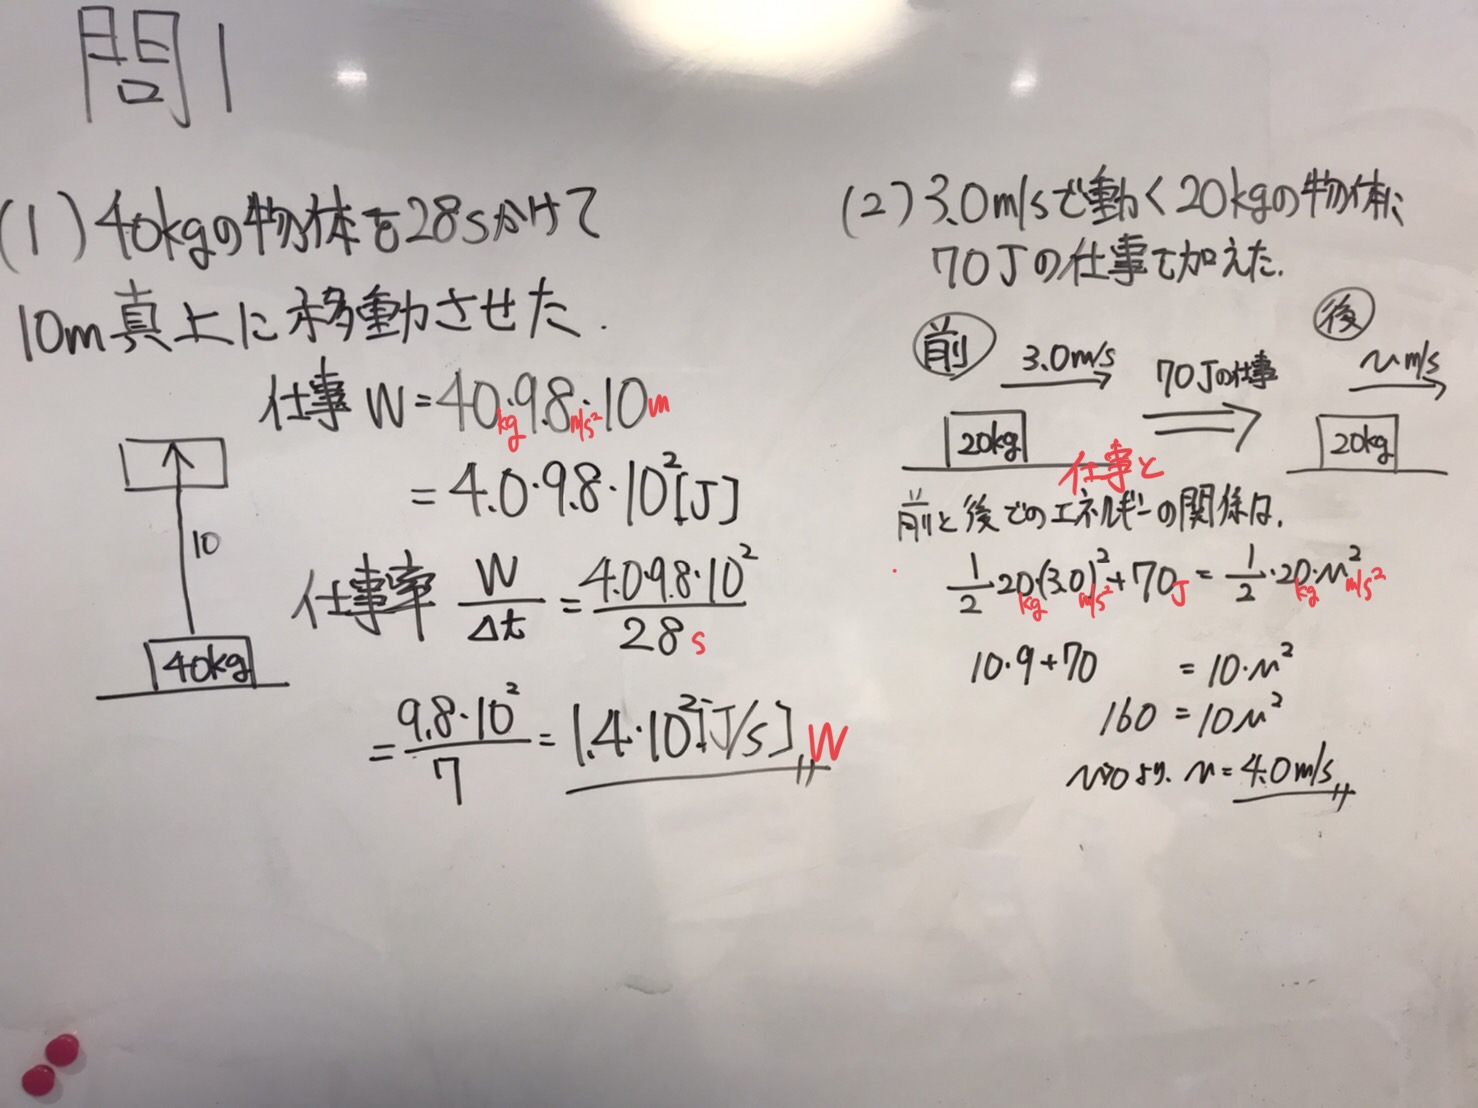 問1
(1) 40kgの物体を28sかけて
10m真上に移動させた.
仕事 W = 40kg·9.8m/s²·10m
= 4.0·9.8·10²[J]
10
40kg
仕事率 W/Δt = 4.0·9.8·10²/28s
= 9.8·10²/7 = 1.4·10²[J/s] W
(2) 3.0m/sで動く20kgの物体に
70Jの仕事を加えた.
前 3.0m/s 70Jの仕事 後 v m/s
20kg 20kg
仕事と
前と後でのエネルギーの関係は.
1/2·20kg·(3.0)²m/s²+70J = 1/2·20kg·v²m/s²
10·9+70 = 10·v²
160 = 10v²
v>0より. v = 4.0m/s